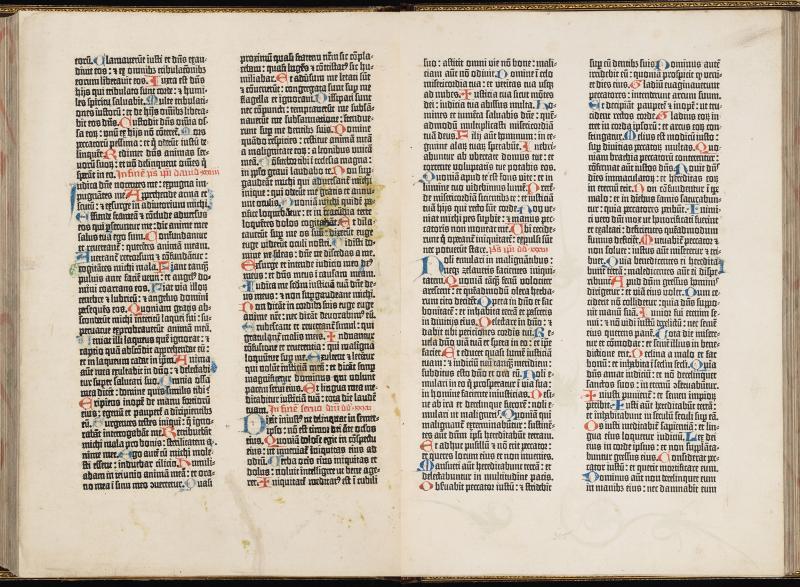 eorū. Clamaverūt iusti et dn̄s exau-
divit eos : & ex omnibus tribulationib
eorum liberavit eos. Iuxta est dn̄s
hijs qui tribulato sunt corde : & humi-
les spiritu salvabit. Multe tribulati-
ones iustorū : et de hijs omnibus liberā-
bit eos dn̄s. Custodit dn̄s omnia os-
sa eorū : unū ex hijs nō conteret. Mors
peccatorum pessima : et q̄ oderūt iustū de-
linquēt. Redimet dn̄s animas ser-
vorū suorū : et nō delinquent omnes q̄
sperāt in eo.
Iudica dn̄e nocentes me : expugna im-
pugnātes me. Apprehende arma et
scutū : & exurge in adiutoriū michi.
Effunde frameā & conclude adversus
eos qui persecuntur me : dic anime mee
salus tua ego sum. Confundantur
et revereantur : querentes animā meam.
Avertant̄ retrorsum & confundātur :
cogitātes michi mala. Fiant tanq̄
pulvis ante faciē venti : et angelus do-
mini coartans eos. Fiat via illorū
tenebre & lubricū : & angelus domini
persequēs eos. Quoniam gratis ab-
sconderūt michi interitū laquei sui : su-
pervacue exprobraverūt animā meā.
Veniat illi laqueus quē ignorat : &
captio quā abscondit apprehendat eū :
et in laqueum cadat in ipsū. Anima
aut̄ mea exultabit in dn̄o : & delectabi-
tur super salutari suo. Omnia ossa
mea dicēt : domine quis similis tibi?
Eripiens inopē de manu fortiorū
eius : egenū et pauperē a diripientibs
eū. Surgentes testes iniqui : q̄ igno-
rabam interrogabāt me. Retribuebāt
michi mala pro bonis : sterilitatem a-
nime mee. Ego aut̄ cū michi mole-
sti essent : induebar cilicio. Humili-
abam in ieiunio animā meā : et ora-
tio mea ī sinu meo convertetur. Quasi
proximū quasi fratrem nr̄m sic cōpla-
cebam : quasi lugēs & cōtristat9 sic hu-
miliabar. Et adversum me letati sūt
& convenerūt : congregata sunt sup me
flagella et ignoravi. Dissipati sunt
nec cōpuncti : temptaverūt me subsā-
naverūt me subsannatione : frendue-
runt sup me dentibs suis. Domine
quādo respicies : restitue animā meā
a malignitate eorū : a leonibus unicā
meā. Confitebor tibi ī ecclesia magna :
in populo gravi laudabo te. Non sup
gaudeāt michi qui adversant̄ michi
inique : qui oderūt me gratis et annu-
unt oculis. Quoniā michi quidē pa-
cifice loquebātur : et in iracūdia terre
loquētes dolos cogitabāt. Et dila-
taverūt sup me os suū : dixerūt euge
euge viderūt oculi nostri. Vidisti do-
mine ne sileas : dn̄e ne discedas a me.
Exurge et intende iudicio meo : de-
us meus & dn̄s meus ī causam meam.
Iudica me scdm̄ iusticiā tuā dn̄e de-
us meus : & non supgaudeant michi.
Non dicāt in cordibs suis euge euge
anime nr̄e : nec dicāt devorabim9 eū.
Erubescant et revereant̄ simul : qui
gratulant̄ malis meis. Induantur
confusione et reverentia : qui magna
loquunt̄ sup me. Exultent & letent̄
qui volūt iusticiā meā : et dicāt semp
magnificetur dominus qui volunt
pacem servi eius. Et lingua mea me-
ditabitur iusticiā tuā : tota die laudē
tuam.
Dixit iniust9 ut delinquat in semet-
ipso : nō est timor dei ante oculos
eius. Quoniā dolose egit in cōspectu
eius : ut inveniat̄ iniquitas eius ad
odiū. Verba oris eius iniquitas et
dolus : noluit intelligere ut bene age-
ret. Iniquitatē meditat9 est ī cubili
suo : astitit omni vie nō bone : mali-
ciam aut̄ nō odivit. Domine ī celo
misericordia tua : et veritas tua usq
ad nubes. Iusticia tua sicut mōtes
dei : iudicia tua abissus multa. Ho-
mines et iumēta salvabis dn̄e : quē-
admodū multiplicasti misericordiā
tuā deus. Filij aut̄ hominum : in te-
gmine alarū tuarū sperabūt. Inebri-
abuntur ab ubertate domus tue : et
torrente voluptatis tue potabis eos.
Quoniā apud te est fons vite : et in
lumine tuo videbimus lumē. Preten-
de misericordiā scientibus te : et iusti-
ciā tuā hijs qui recto sūt corde. Non ve-
niat michi pes superbie : & manus pec-
catoris non moveat me. Ibi cecide-
runt q̄ operant̄ iniquitatē : expulsi sūt
nec potuerūt stare.
Noli emulari in malignantibus :
neq̄ zelaveris facientes iniqui-
tatem. Quoniā tanq̄ fenū velociter
arescent : et quēadmodū olera herba-
rum cito decidēt. Spera in dn̄o et fac
bonitatē : et inhabita terrā et pasceris
in divicijs eius. Delectare in dn̄o : &
dabit tibi peticiones cordis tui. Re-
vela dn̄o viā tuā et spera in eo : et ipse
faciet. Et educet quasi lumē iusticiā
tuam : & iudiciū tuū tanq̄ meridiem :
subditus esto dn̄o et ora eū. Noli e-
mulari in eo q̄ prosperatur ī via sua :
in homine faciente iniusticias. Desi-
ne ab ira et derelinque furorē : noli e-
mulari ut maligneris. Quoniā qui
malignant̄ exterminabūtur : sustinē-
tes aut̄ dn̄m ipsi hereditabunt terrā.
Et adhuc pusillū & nō erit peccator :
et queres locum eius et non invenies.
Mansueti aut̄ hereditabunt terrā : et
delectabuntur in multitudine pacis.
Observabit peccator iustū : & stridebit
sup eū dentibs suis. Dominus aut̄
irridebit eū : quoniā prospicit q̄ veni-
et dies eius. Gladiū evaginaverunt
peccatores : intenderunt arcum suum.
Ut decipiāt pauperē & inopē : ut tru-
cident rectos corde. Gladius eorū in-
tret in corda ipsorū : et arcus eorū con-
fringatur. Melius est modicū iusto :
sup divicias peccatorū multas. Quo-
niam brachia peccatorū conterentur :
cōfirmat aut̄ iustos dn̄s. Novit dn̄s
dies immaculatorū : et hereditas eorū
in eternū erit. Non cōfundentur ī tp̄e
malo : et in diebus famis saturabun-
tur : quia peccatores peribūt. Inimi-
ci vero dn̄i mox ut honorificati fuerint
et exaltati : deficientes quēadmodum
fumus deficiēt. Mutuabit̄ peccator &
non solvet : iustus aut̄ miseretur & tri-
buet. Quia benedicentes ei heredita-
bunt terrā : maledicentes aut̄ ei dispe-
ribunt. Apud dn̄m gressus hominis
dirigetur : et viā eius volet. Cum ce-
ciderit nō collidetur : quia dn̄s suppo-
nit manū suā. Iunior fui etenim se-
nui : & nō vidi iustū derelictū : nec semē
eius querens panē. Tota die misere-
tur et cōmodat : et semē illius in bene-
dictione erit. Declina a malo et fac
bonū : et inhabita in seclm̄ secli. Quia
dn̄s amat iudiciū : et nō derelinquet
sanctos suos : in eternū cōservabunt̄.
Iniusti punientur : et semen impiorū
peribit. Iusti aut̄ hereditabūt terrā :
et inhabitabunt in seculū seculi sup eā.
Os iusti meditabit̄ sapientiā : et lin-
gua eius loquetur iudiciū. Lex dei
eius in corde ipsius : et non supplāta-
buntur gressus eius. Considerat pec-
cator iustū : et querit mortificare eum.
Dominus aut̄ non derelinquet eum
in manibs eius : nec damnabit eum